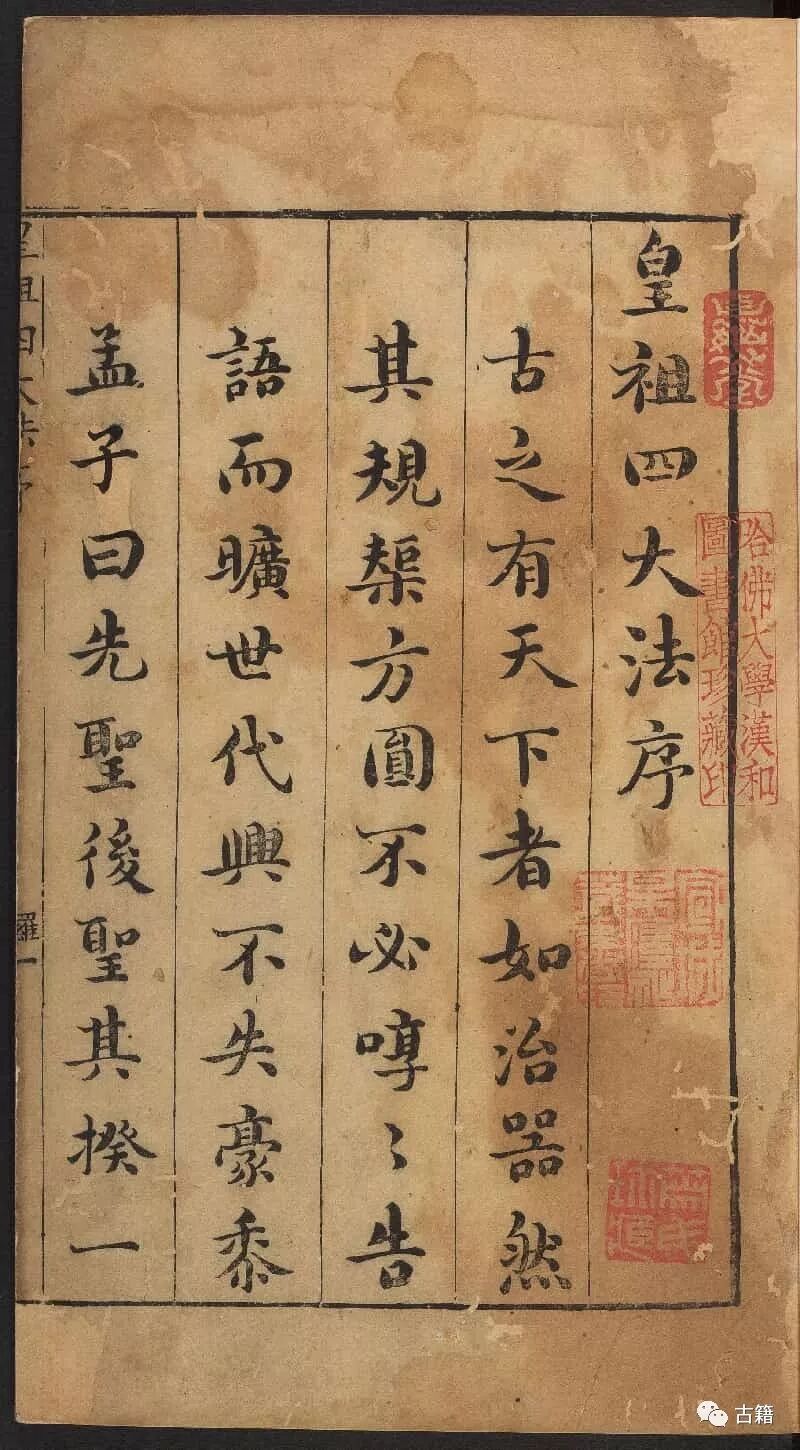 皇祖四大法序
古之有天下者如治器然
其規榘方圓不必啍〻告
語而曠世代興不失豪黍
孟子曰先聖後聖其揆一
哈佛大學漢和
圖書館珍藏印
皇祖四大法序
羅一
古籍